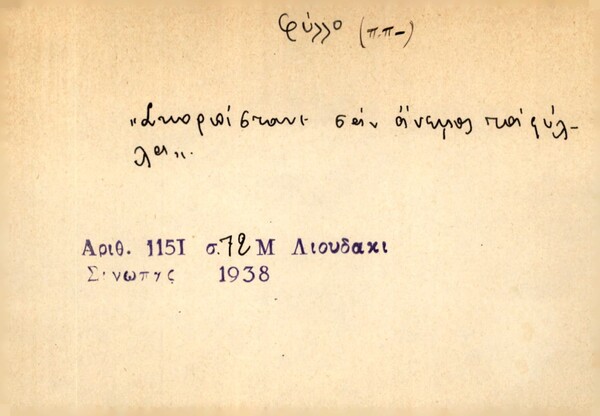 φύλλο (π.π-)
"Σκορπίσταν σάν άνεμος τά φύλ-
λα".
Αριθ. 1151 σ. 72 Μ Λιουδακι
Σινωπης 1938